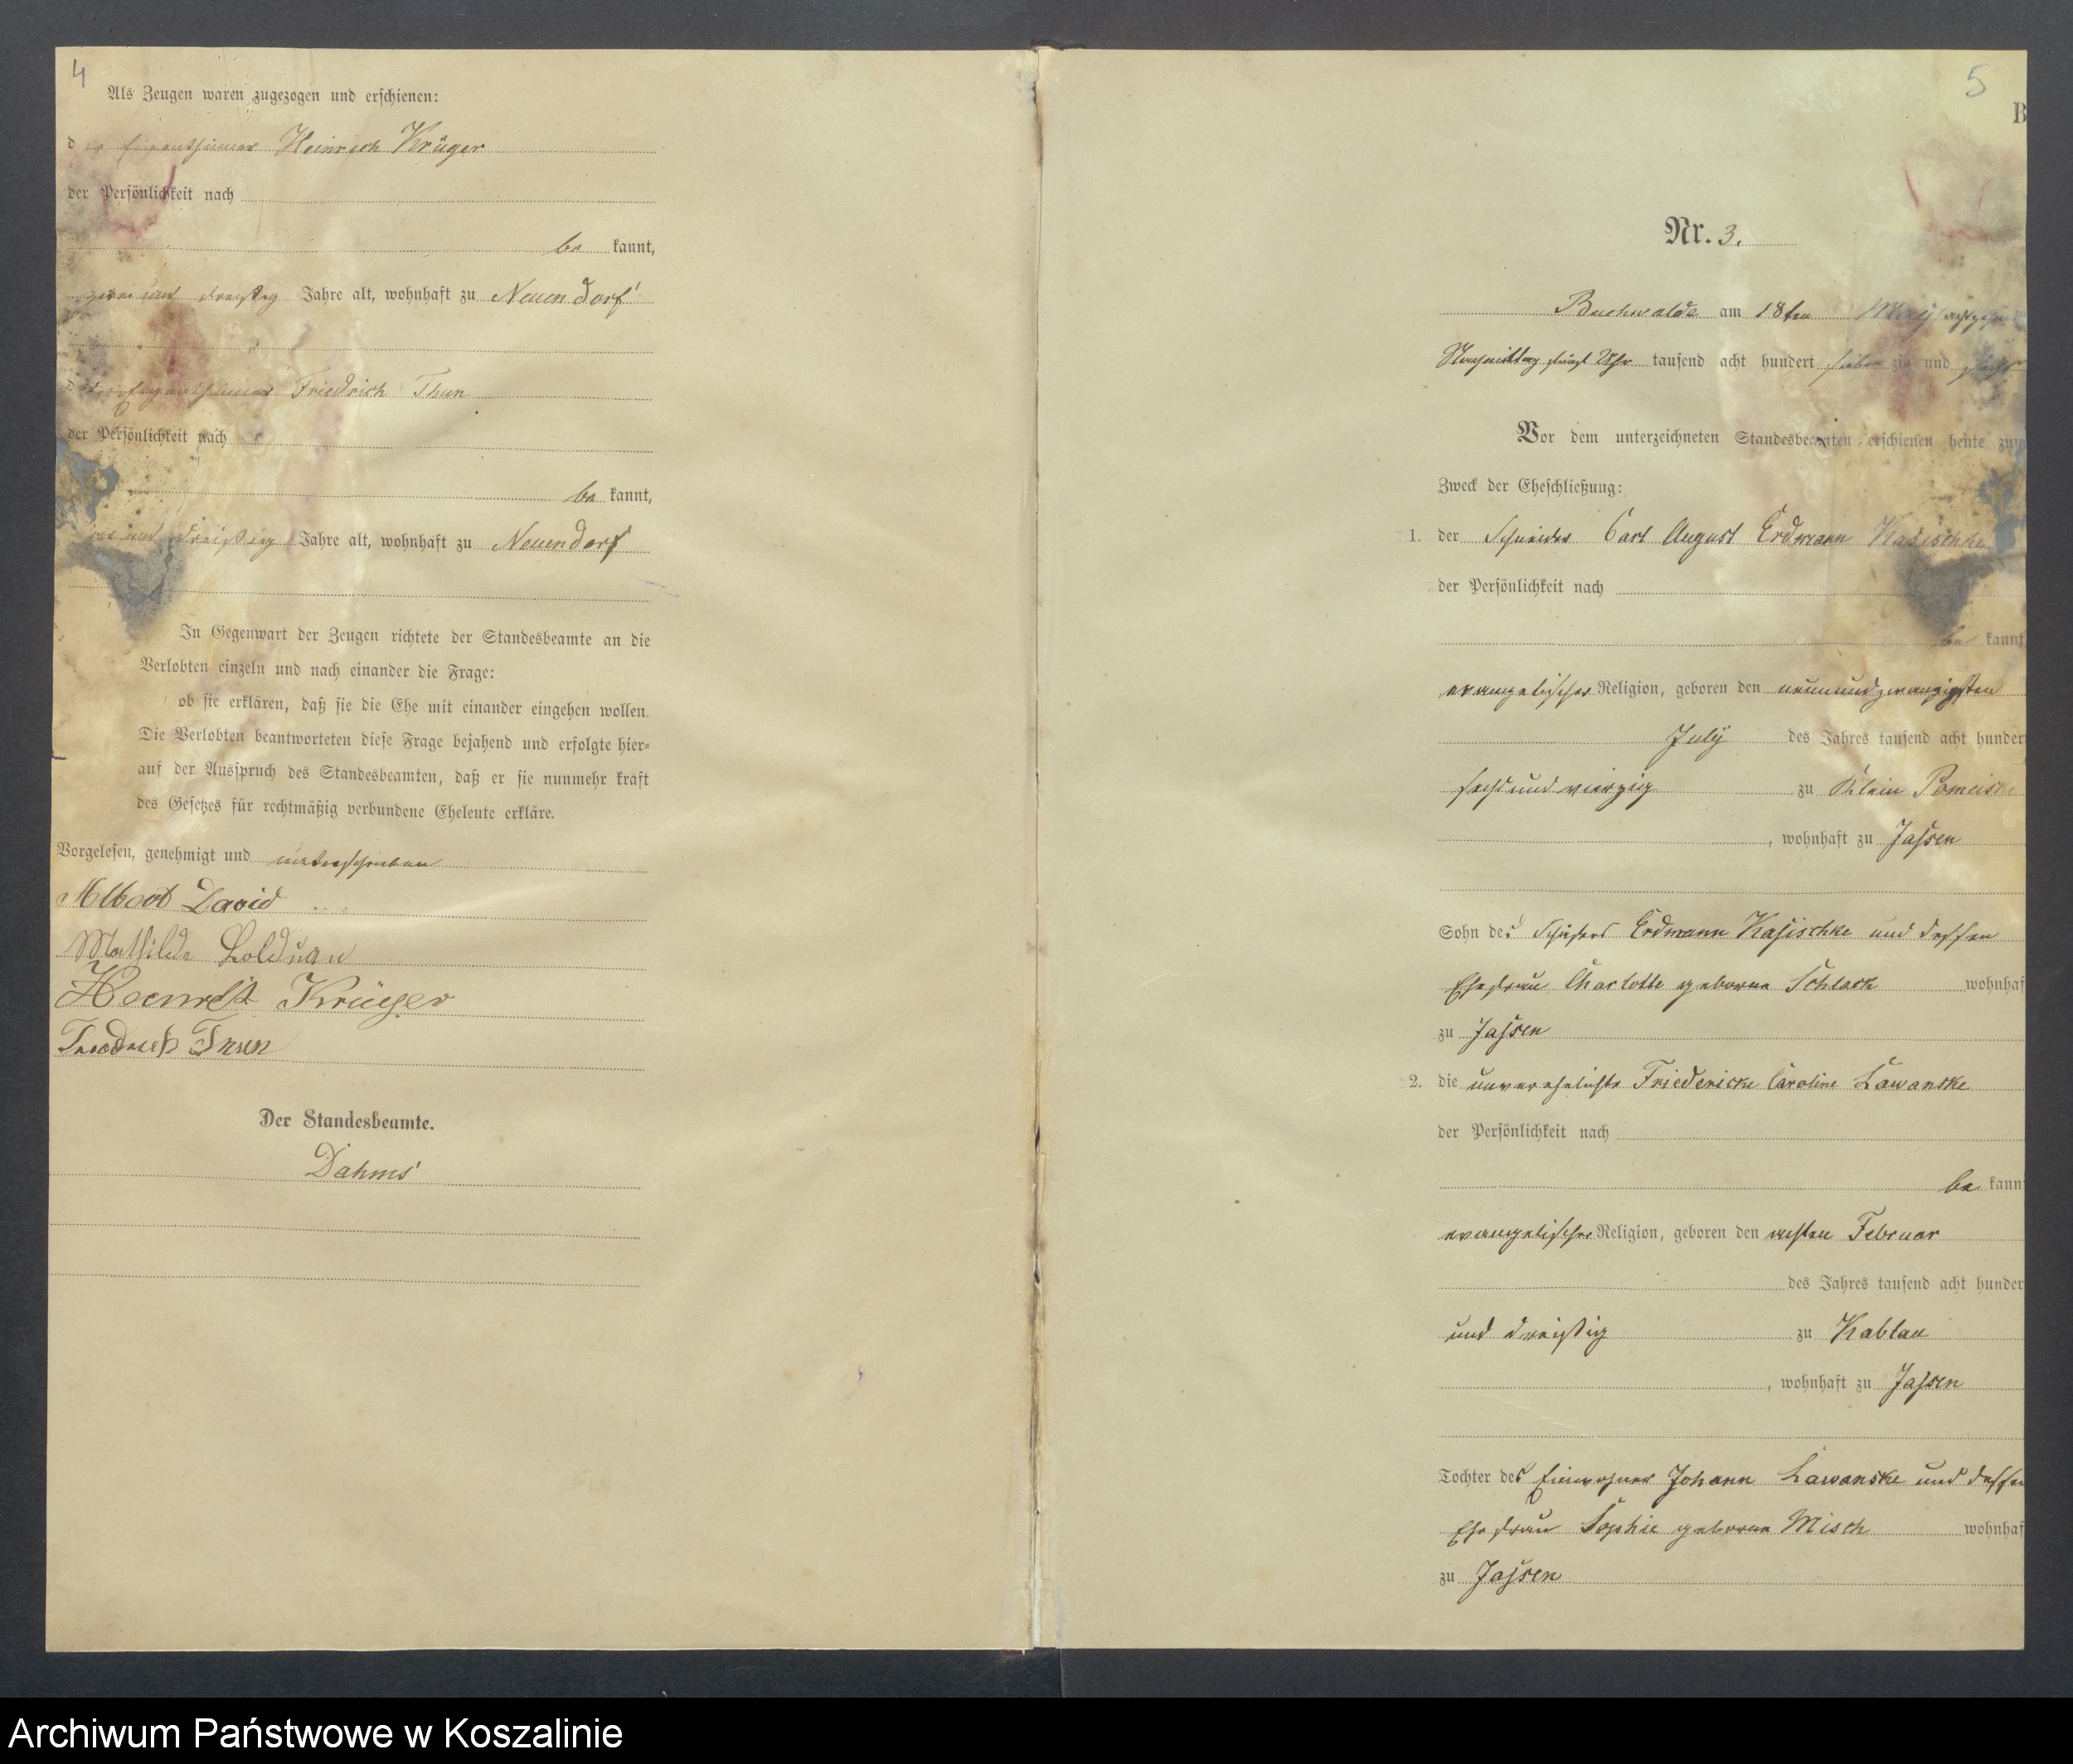 4
Als Zeugen waren zugezogen und erschienen:
d Eigenthümer Heinrich Krüger
der Persönlichkeit nach
be kannt,
zwei und dreißig Jahre alt, wohnhaft zu Neuendorf
Eigenthümer Friedrich Thun
der Persönlichkeit nach
be kannt,
und dreißig Jahre alt, wohnhaft zu Neuendorf
In Gegenwart der Zeugen richtete der Standesbeamte an die
Verlobten einzeln und nach einander die Frage:
ob sie erklären, daß sie die Ehe mit einander eingehen wollen.
Die Verlobten beantworteten diese Frage bejahend und erfolgte hier-
auf der Ausspruch des Standesbeamten, daß er sie nunmehr kraft
des Gesetzes für rechtmäßig verbundene Eheleute erkläre.
Vorgelesen, genehmigt und unterschrieben
Albert David
Mathilde Golduan
Heinrich Krüger
Friedrich Thun
Der Standesbeamte.
Dahms
5
B
Nr. 3.
Buchwalde am 18ten May achtzehn
Nachmittag fünf Uhr tausend acht hundert sieben zig und sechs
Vor dem unterzeichneten Standesbeamten erschienen heute zum
Zweck der Eheschließung:
1. der Schneider Carl August Erdmann Kasischke
der Persönlichkeit nach
be kannt
evangelischer Religion, geboren den neunundzwanzigsten
July des Jahres tausend acht hunder
sechsundvierzig zu Klein Pomeiske
, wohnhaft zu Jassen
Sohn des Schäfers Erdmann Kasischke und dessen
Ehefrau Charlotte geborne Schlack wohnhaf
zu Jassen
2. die unverehelichte Friedericke Caroline Lawanske
der Persönlichkeit nach
be kann
evangelischer Religion, geboren den achten Februar
des Jahres tausend acht hunder
und dreißig zu Kablau
, wohnhaft zu Jassen
Tochter des Einwohner Johann Lawanske und dessen
Ehefrau Sophie geborne Misch wohnhaf
zu Jassen
Archiwum Państwowe w Koszalinie